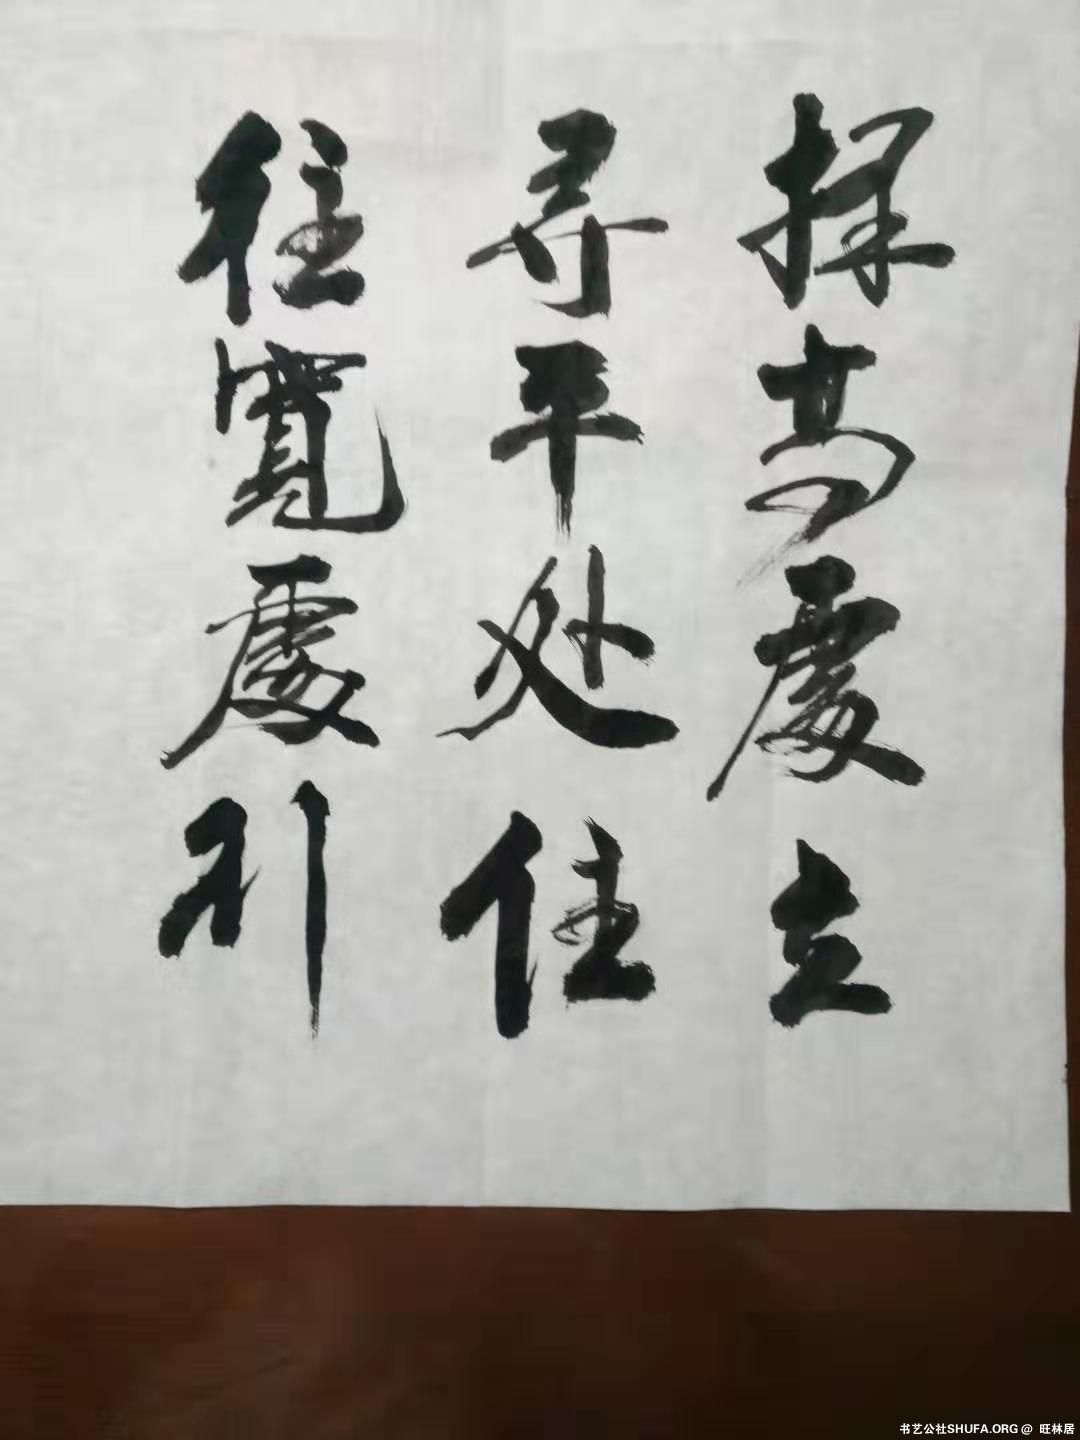 择高處立
寻平处住
往寬處行
书艺公社SHUFA.ORG @ 旺林居